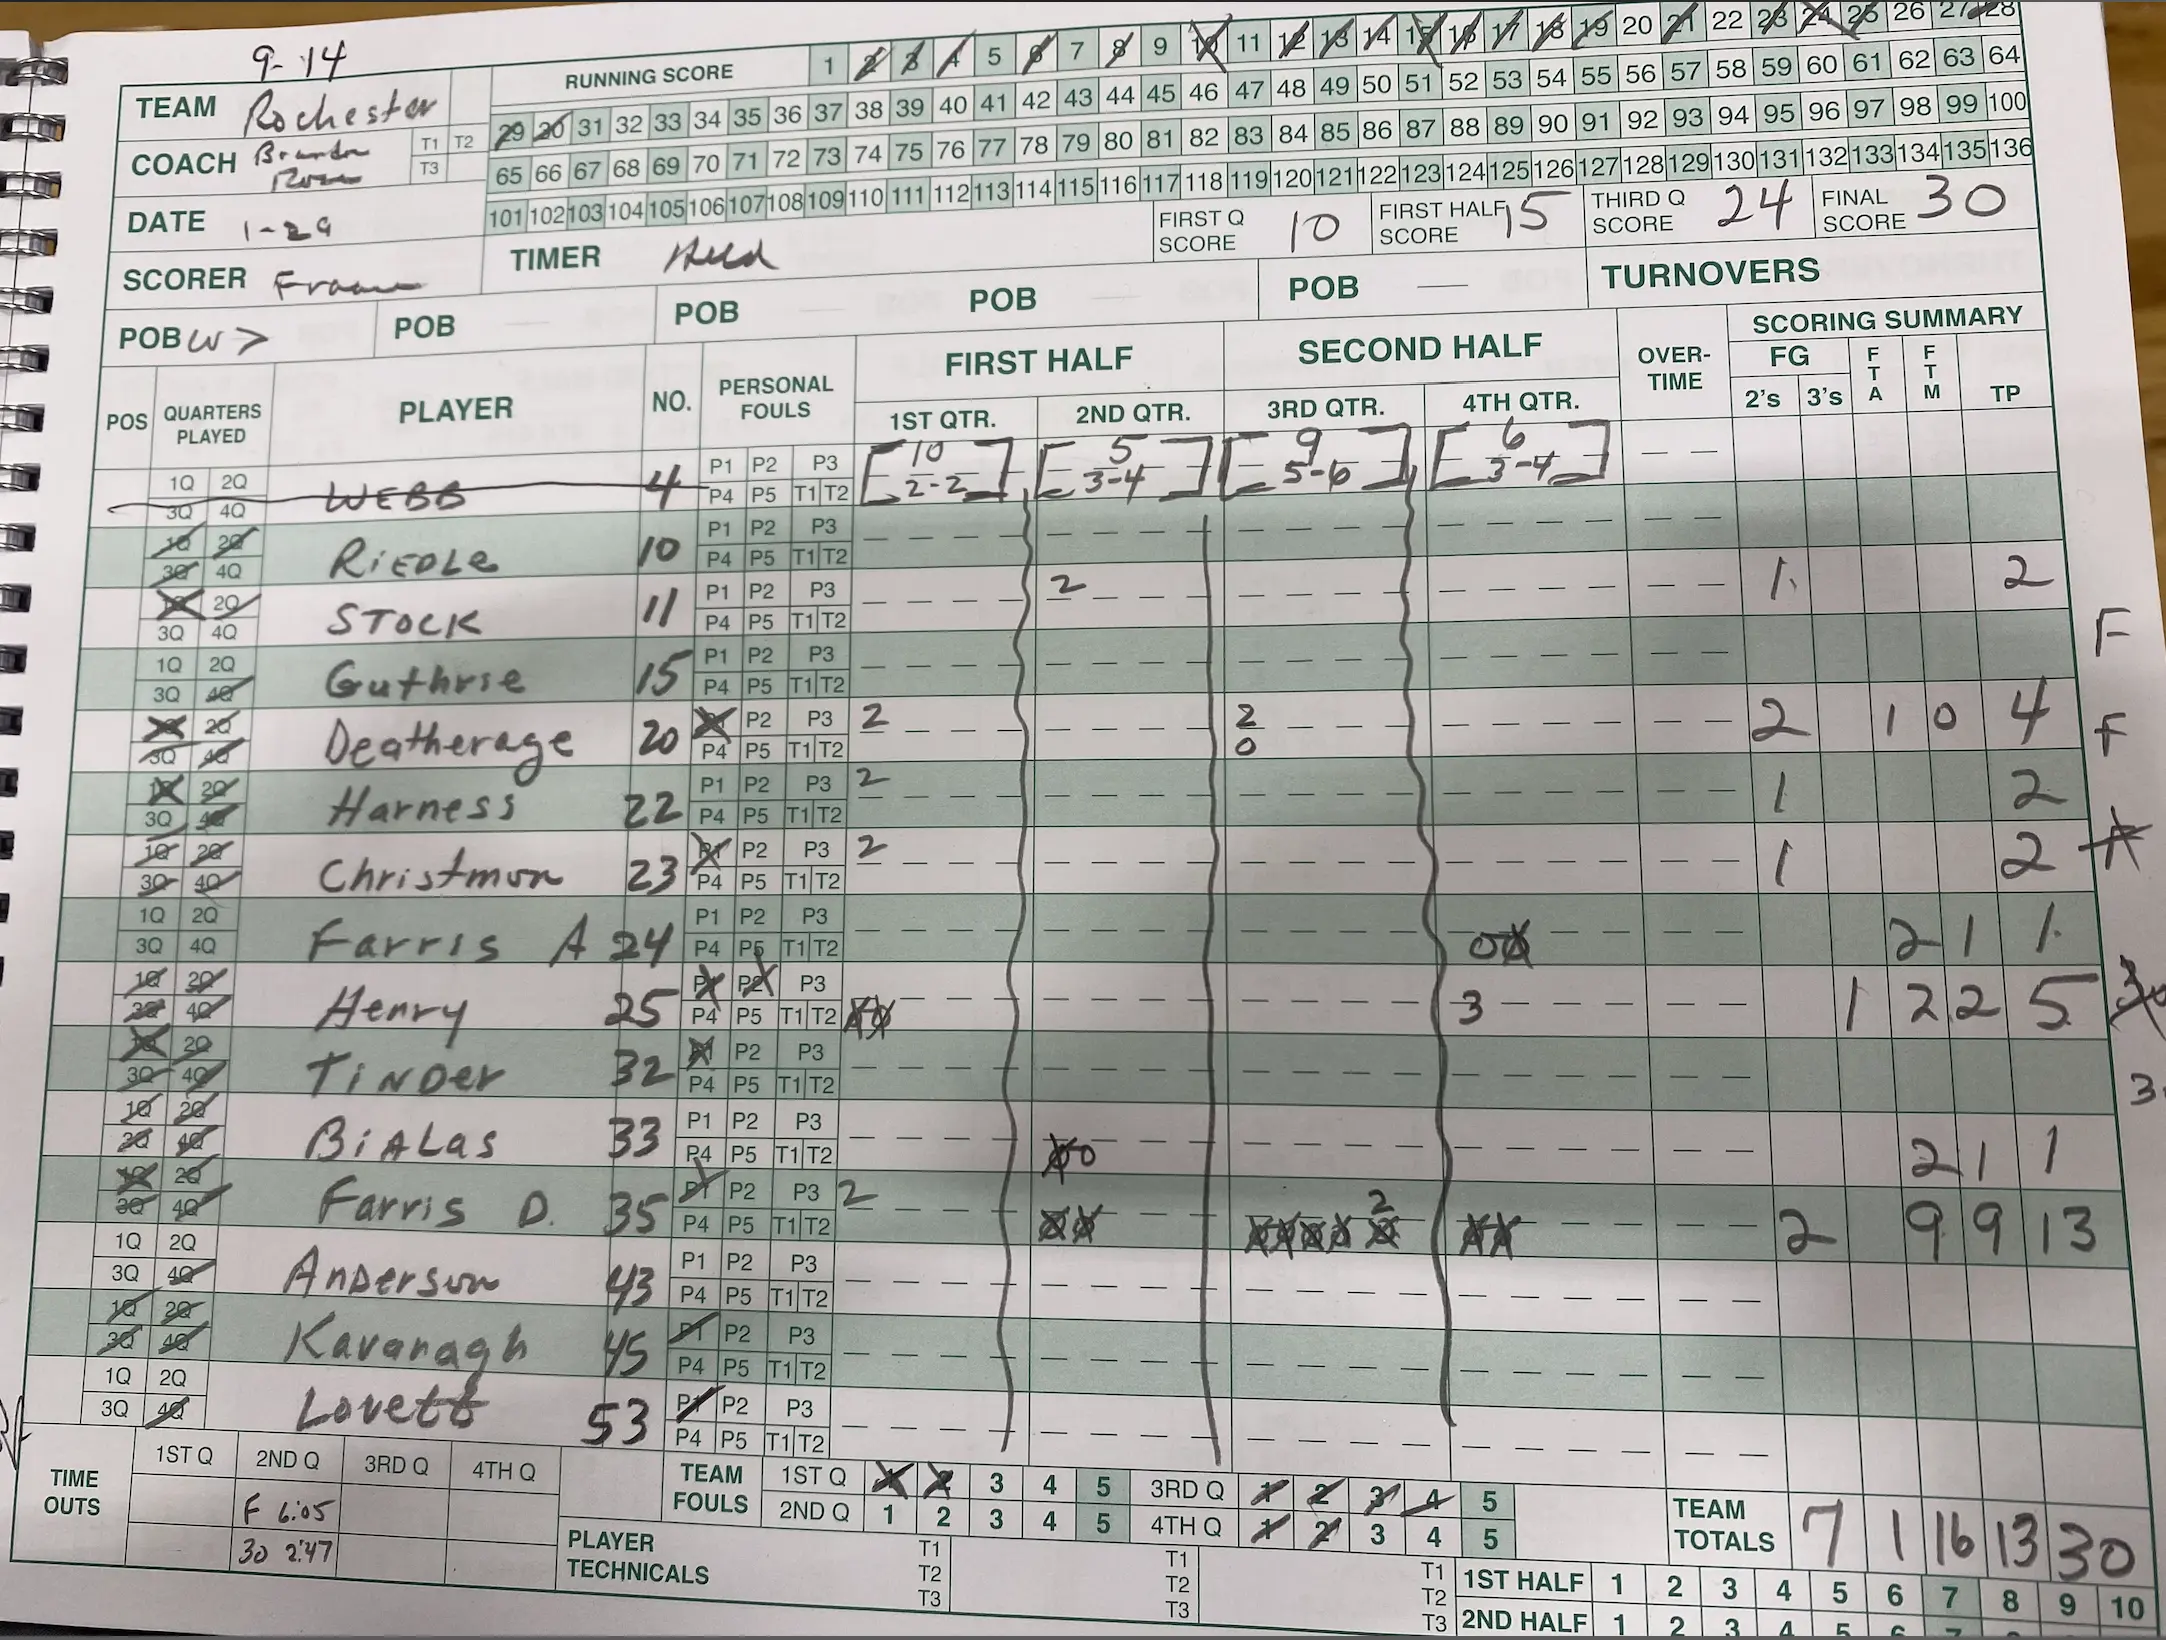 9-14
RUNNING SCORE 1 2 3 4 5 6 7 8 9 10 11 12 13 14 15 16 17 18 19 20 21 22 23 24 25 26 27 28
TEAM Rochester
29 30 31 32 33 34 35 36 37 38 39 40 41 42 43 44 45 46 47 48 49 50 51 52 53 54 55 56 57 58 59 60 61 62 63 64
COACH T1 T2 T3
65 66 67 68 69 70 71 72 73 74 75 76 77 78 79 80 81 82 83 84 85 86 87 88 89 90 91 92 93 94 95 96 97 98 99 100
101 102 103 104 105 106 107 108 109 110 111 112 113 114 115 116 117 118 119 120 121 122 123 124 125 126 127 128 129 130 131 132 133 134 135 136
DATE 1-29
FIRST Q SCORE 10 FIRST HALF SCORE 15 THIRD Q SCORE 24 FINAL SCORE 30
SCORER TIMER
POB W > POB POB POB POB — TURNOVERS
POS QUARTERS PLAYED PLAYER NO. PERSONAL FOULS FIRST HALF SECOND HALF OVER-TIME SCORING SUMMARY
1ST QTR. 2ND QTR. 3RD QTR. 4TH QTR. FG 2's 3's FTA FTM TP
1Q 2Q WEBB 4 P1 P2 P3 [10 2-2] [5 3-4] [9 5-6] [6 3-4]
3Q 4Q P4 P5 T1 T2
1Q 2Q RiEDLe 10 P1 P2 P3
3Q 4Q P4 P5 T1 T2
1Q 2Q STOCK 11 P1 P2 P3 2 1 2
3Q 4Q P4 P5 T1 T2
1Q 2Q Guthrie 15 P1 P2 P3 F
3Q 4Q P4 P5 T1 T2
1Q 2Q Deatherage 20 P1 P2 P3 2 2 2 1 0 4 F
3Q 4Q P4 P5 T1 T2 0
1Q 2Q Harness 22 P1 P2 P3 2 1 2
3Q 4Q P4 P5 T1 T2
1Q 2Q Christmon 23 P1 P2 P3 2 1 2
3Q 4Q P4 P5 T1 T2
1Q 2Q Farris A 24 P1 P2 P3 2 1 1
3Q 4Q P4 P5 T1 T2 0 0
1Q 2Q Henry 25 P1 P2 P3 3 1 2 2 5
3Q 4Q P4 P5 T1 T2 0 0
1Q 2Q TiNDer 32 P1 P2 P3
3Q 4Q P4 P5 T1 T2
1Q 2Q BiALas 33 P1 P2 P3 2 1 1
3Q 4Q P4 P5 T1 T2 0 0
1Q 2Q Farris D. 35 P1 P2 P3 2 2 2 9 9 13
3Q 4Q P4 P5 T1 T2 0 0 0 0 0 0 0 0 0
1Q 2Q AnDerson 43 P1 P2 P3
3Q 4Q P4 P5 T1 T2
1Q 2Q Kavanagh 45 P1 P2 P3
3Q 4Q P4 P5 T1 T2
1Q 2Q Lovett 53 P1 P2 P3
3Q 4Q P4 P5 T1 T2
TIME OUTS 1ST Q 2ND Q 3RD Q 4TH Q
F 6:05
30 2:47
TEAM FOULS 1ST Q 1 2 3 4 5 3RD Q 1 2 3 4 5
2ND Q 1 2 3 4 5 4TH Q 1 2 3 4 5
TEAM TOTALS 7 1 16 13 30
PLAYER TECHNICALS T1 T2 T3 T1 T2 T3 T1 T2 T3
1ST HALF 1 2 3 4 5 6 7 8 9 10
2ND HALF 1 2 3 4 5 6 7